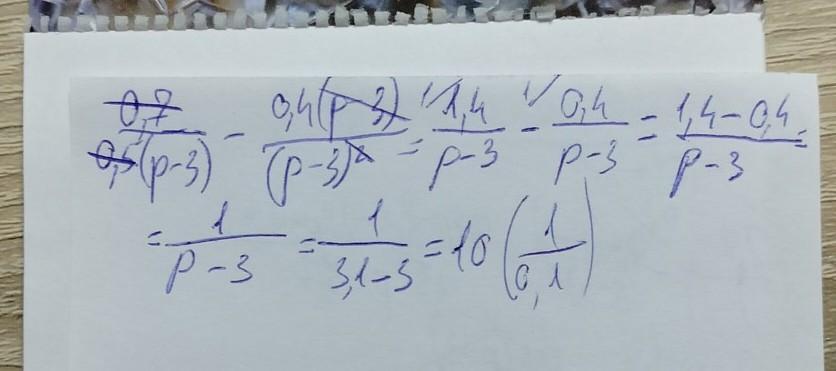 0,7/0,5(p-3) - 0,4(p-3)/(p-3)² = 1,4/p-3 - 0,4/p-3 = 1,4-0,4/p-3 =
= 1/p-3 = 1/3,1-3 = 10 (1/0,1)